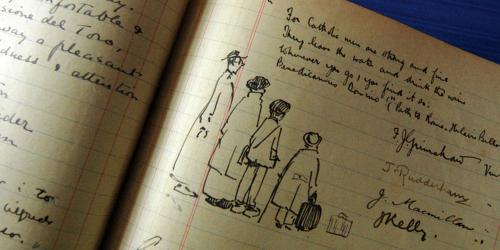 omfortable &
sione del Toro,
way a pleasant
dness & attention
on
rder
on
: to
For Catholic men are strong and fine
They live on water and drink the wine
Wherever you go, you find it so.
Benedicamus Domino! (Path to Rome. Hilaire Belloc
J. Grimshaw
J. Rudderham
J. Macmillan
J Kelly.